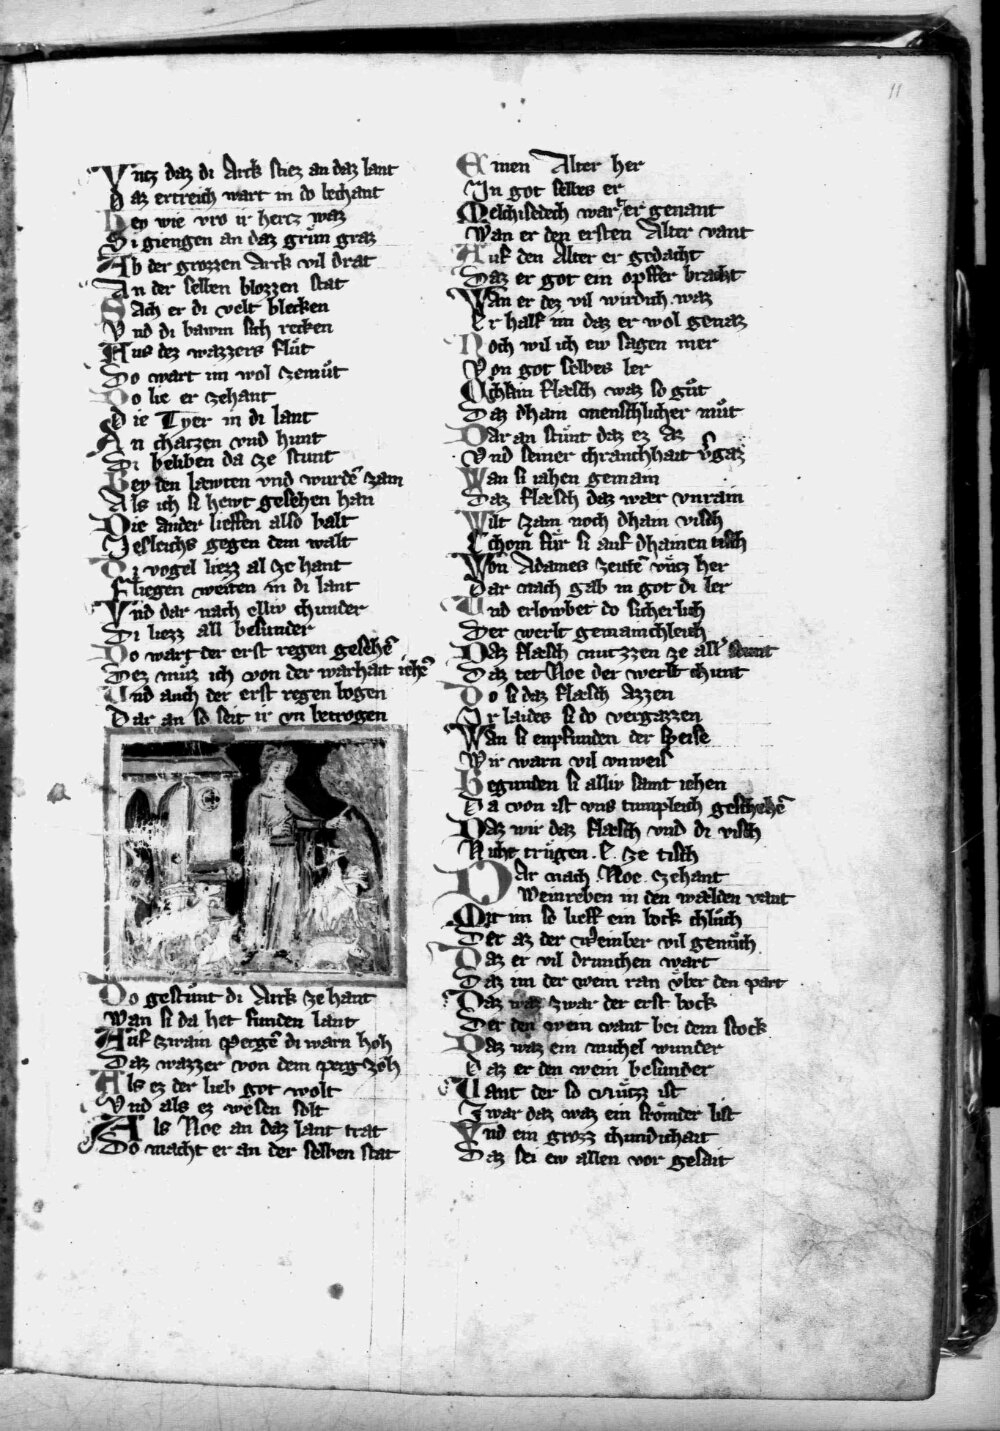 11
Vntz daz di Arck stiez an daz lant
Daz ertreich wart in do bechant
Hey wie vro ir hertz waz
Si giengen an daz grün graz
Ab der grozzen Arck vil drat
An der selben blozzen stat
Sach er di velt blecken
Vnd di bawm sich recken
Aus dez wazzers flůt
Do wart im wol zemůt
Do lie er zehant
Die Tyer in di lant
An chatzen vnd hunt
Di beliben da ze stunt
Bey den læwten vnd wurdē zam
Als ich si hewt gesehen han
Die ander lieffen also balt
Iesleichs gegen dem walt
Di vogel liezz al ze hant
Fliegen weiten in di lant
Vnd dar nach elliv chunder
Di liezz all besunder
Do wart der erst regen gesehē
Dez můz ich von der warhait iehē
Und auch der erst regen bogen
Dar an so seit ir vn betrogen
Do gestůnt di Arck ze hant
Wan si da het funden lant
Auf zwain pergē di warn hoh
Daz wazzer von dem perg zoh
Als ez der lieb got wolt
Vnd als ez wesen solt
Als Noe an daz lant trat
Do macht er an der selben stat
Einen Alter her
In got selbes er
Melchisedech war er genant
Wan er den ersten Alter vant
Auf den Alter er gedacht
Daz er got ein opffer bracht
Wan er dez vil wirdich waz
Er half im daz er wol genaz
Noch wil ich ew sagen mer
Von got selbes ler
Dchain flæsch waz so gůt
Daz dham menschlicher můt
Dar an stůnt daz ez az
Vnd seiner chranchhait v̄gaz
Wan si iahen gemain
Daz flæsch daz wær vnrain
Wilt zam noch dham visch
Chom für si auf dhainen tisch
Von Adames zeitē vůtz her
Dar nach gab in got di ler
Und erlowbet do sicherlich
Der werlt gemainchleich
Daz flæsch nutzzen ze all stunt
Daz tet Noe der werlt chunt
Do si daz flæsch azzen
Ir laides si do vergazzen
Wan si enpfunden der speise
Wir warn vil vnweis
Begunden si alliv samt iehen
Da von ist vns tumpleich geschehē
Daz wir daz flæsch vnd di visch
Niht trůgen . E . ze tisch
Dar nach Noe zehant
Weinreben in den wælden vant
Mit im so lieff ein bock chlůch
Der az der weinber vil genůch
Daz er vil drunchen wart
Daz im der wein ran vber den part
Daz waz zwar der erst bock
Der den wein vant bei dem stock
Daz waz ein michel wunder
Daz er den wein besunder
Vant der so nůtz ist
Zwar daz waz ein frömder list
Vnd ein grozz chundichait
Daz sei ew allen vor gesait